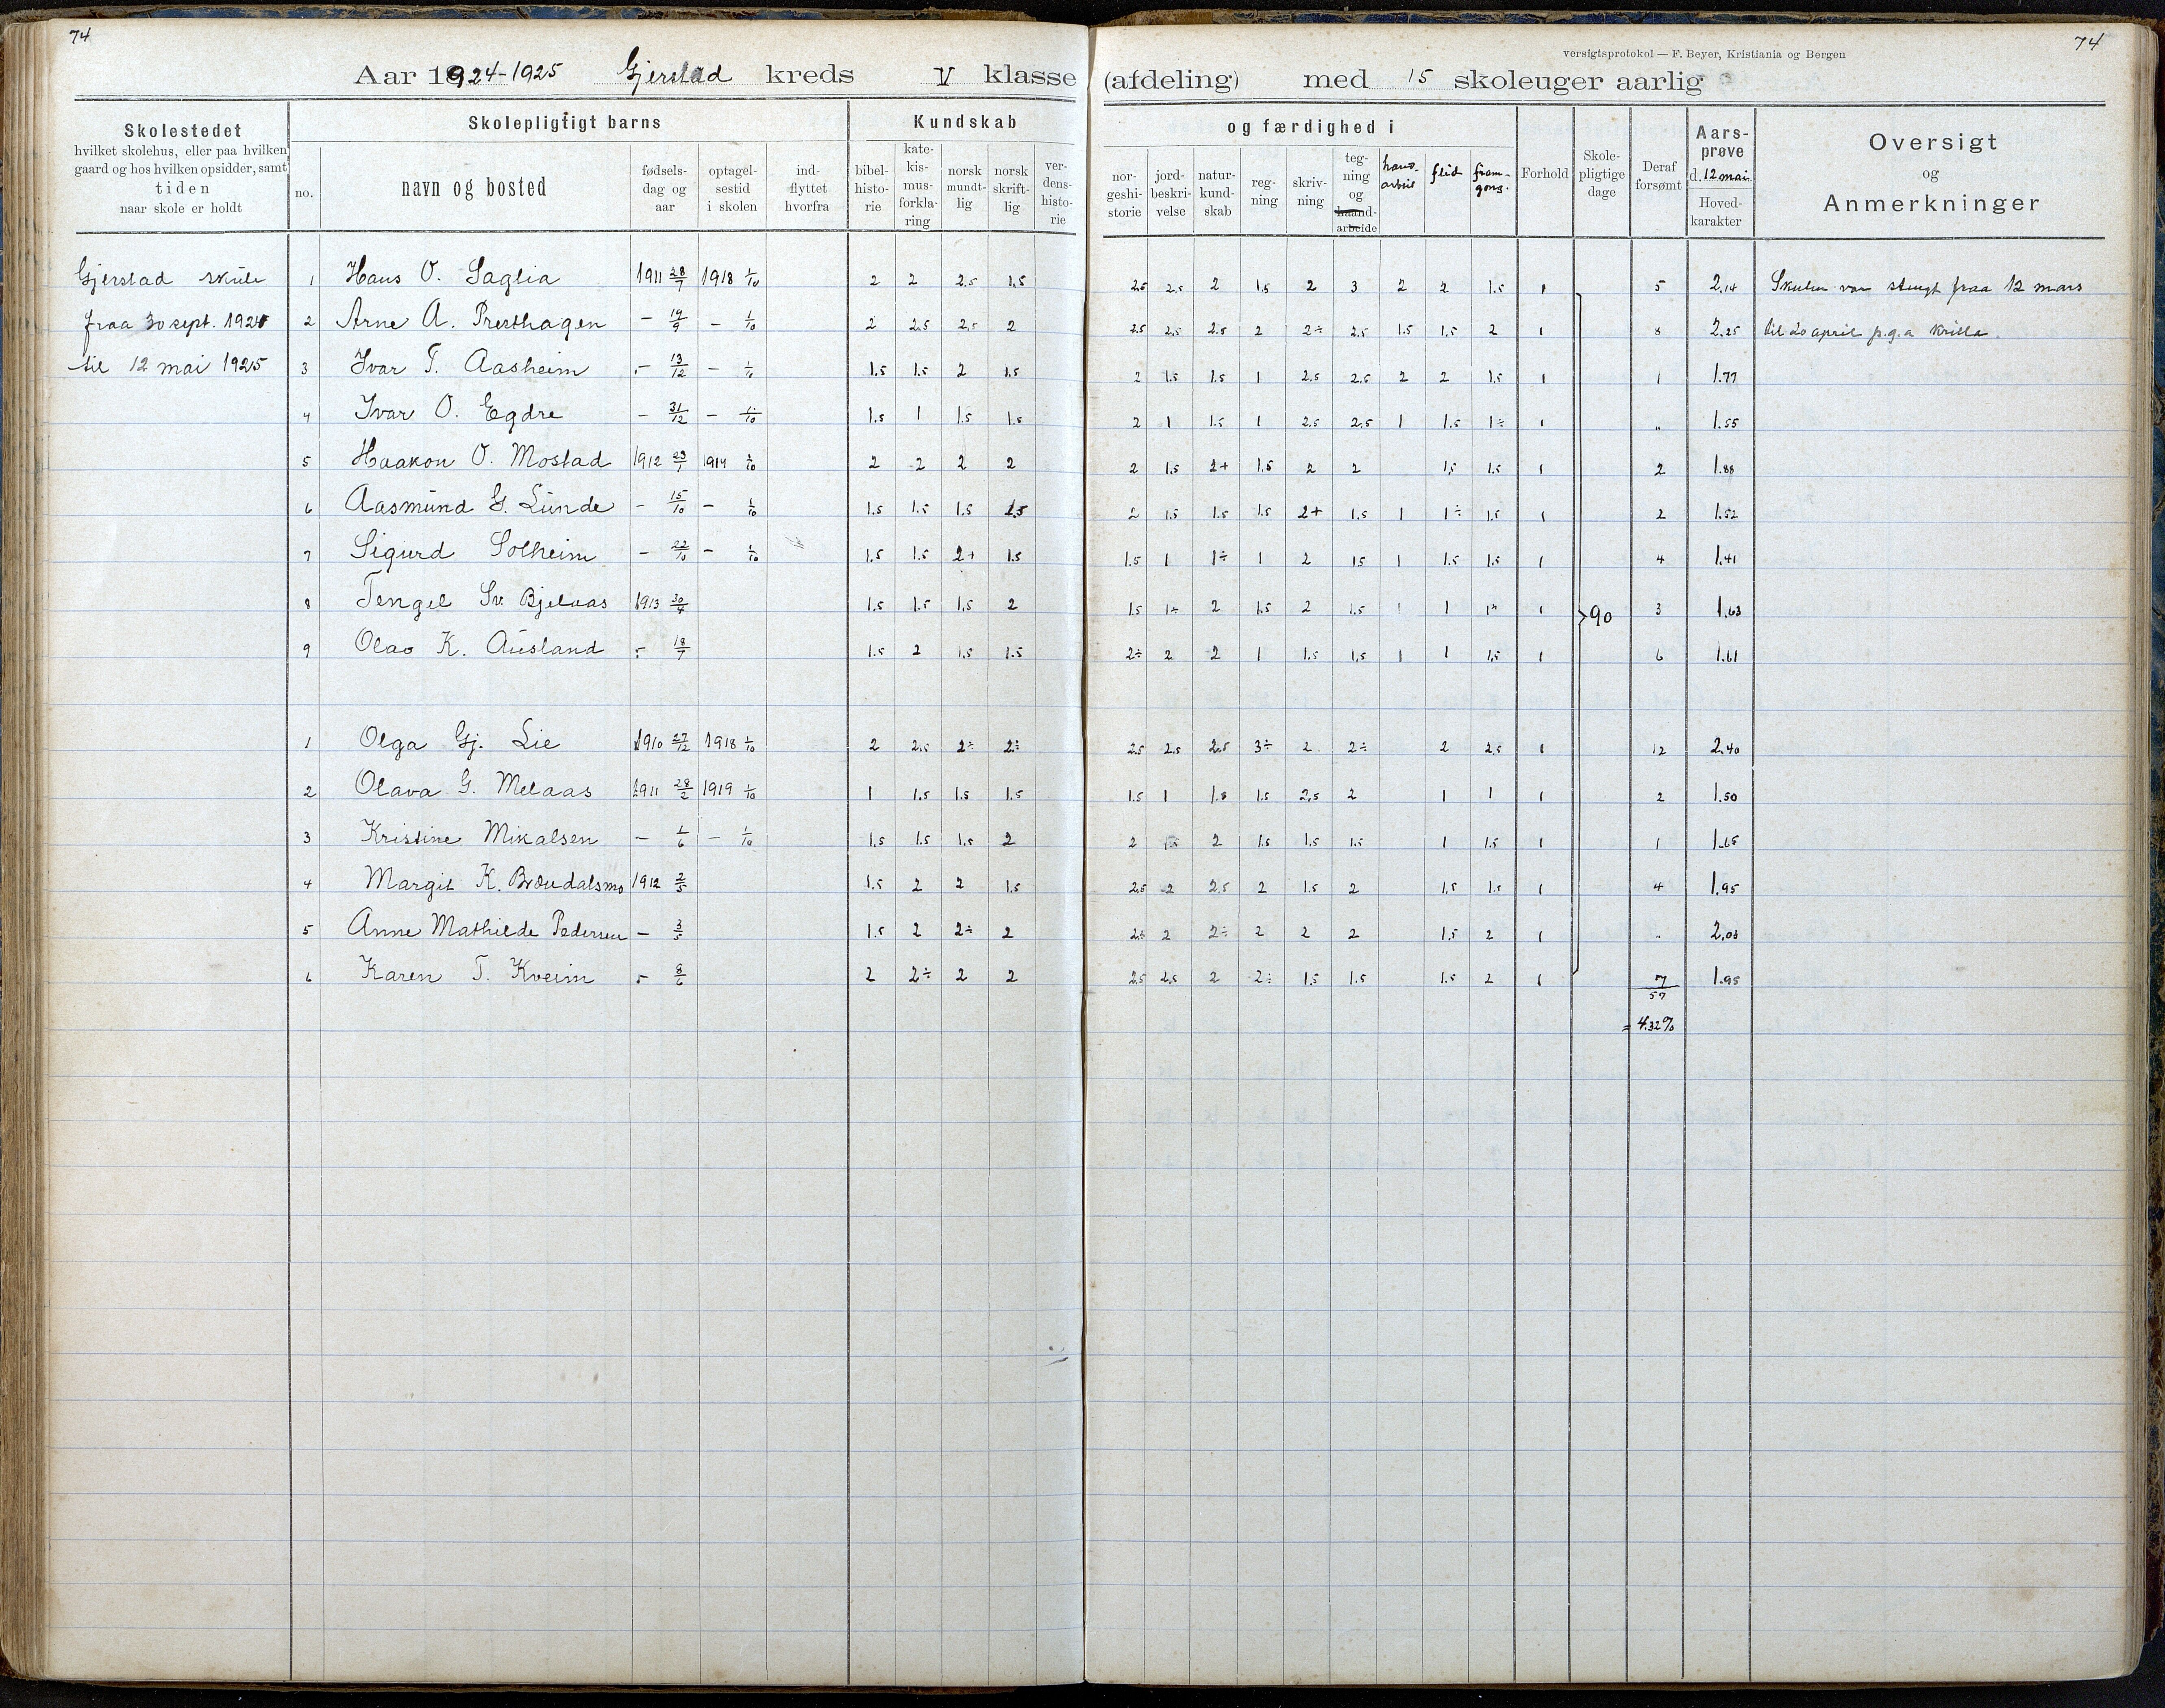 74
74
versigtsprotokol — F. Beyer, Kristiania og Bergen
Aar 1924-1925 Gjerstad kreds V klasse (afdeling) med 15 skoleuger aarlig
Skolestedet hvilket skolehus, eller paa hvilken gaard og hos hvilken opsidder, samt tiden naar skole er holdt
Skolepligtigt barns
Kundskab og færdighed i
no. navn og bosted fødsels-dag og aar optagel-sestid i skolen ind-flyttet hvorfra
bibel-histo-rie kate-kis-mus-forkla-ring norsk mundt-lig norsk skrift-lig ver-dens-histo-rie
nor-geshi-storie jord-beskri-velse natur-kund-skab reg-ning skriv-ning teg-ning og haand-arbeide hand-arbeid flid fram-gong.
Forhold Skole-pligtige dage Deraf forsømt Aars-prøve d. 12 mai. Hoved-karakter
Oversigt og Anmerkninger
Gjerstad skule 1 Hans O. Saglia 1911 28/7 1918 1/10 2 2 2,5 1,5 2,5 2,5 2 1,5 2 3 2 2 1.5 1 5 2,14 Skulen var stengt fraa 12 mars
fraa 30 sept. 1924 2 Arne A. Presthagen - 19/9 - 1/10 2 2,5 2,5 2 2,5 2,5 2,5 2 2÷ 2,5 1.5 1,5 2 1 8 2,25 til 20 april p.g.a krilla.
til 12 mai 1925 3 Ivar T. Aasheim - 13/12 - 1/10 1.5 1.5 2 1.5 2 1.5 1.5 1 2,5 2,5 2 2 1.5 1 1 1.77
4 Ivar O. Egdre - 31/12 - 1/10 1.5 1 1.5 1.5 2 1 1.5 1 2,5 2,5 1 1.5 1÷ 1 " 1.55
5 Haakon O. Mostad 1912 23/1 1914 1/10 2 2 2 2 2 1.5 2+ 1.5 2 2 1,5 1.5 1 2 1.88
6 Aasmund G. Lunde - 15/10 - 1/10 1.5 1.5 1.5 2.5 2 1.5 1.5 1.5 2+ 1.5 1 1÷ 1.5 1 2 1.52
7 Sigurd Solheim - 22/10 - 1/10 1.5 1.5 2+ 1.5 1.5 1 1÷ 1 2 1.5 1 1.5 1.5 1 4 1.41
8 Tengel Sv. Bjelaas 1913 30/4 1.5 1.5 1.5 2 1.5 1÷ 2 1.5 2 1.5 1 1 1÷ 1 90 3 1.63
9 Olav K. Ausland - 18/7 1.5 2 1.5 1.5 2÷ 2 2 1 1.5 1,5 1 1 1,5 1 6 1.61
1 Olga Gj. Lie 1910 27/12 1918 1/10 2 2,5 2÷ 2÷ 2,5 2,5 2,5 3÷ 2 2÷ 2 2,5 1 12 2,40
2 Olava G. Melaas 1911 28/2 1919 1/10 1 1.5 1.5 1.5 1.5 1 1.5 1.5 2,5 2 1 1 1 2 1.50
3 Kristine Mikalsen - 1/6 - 1/10 1.5 1.5 1.5 2 2 1.5 2 1.5 1.5 1.5 1 1.5 1 1 1.65
4 Margit K. Brøndalsmo 1912 2/5 1.5 2 2 1.5 2,5 2 2,5 2 1.5 2 1,5 1.5 1 4 1.95
5 Anne Mathilde Pedersen - 3/5 1.5 2 2÷ 2 2,5 2 2÷ 2 2 2 1.5 2 1 " 2,03
6 Karen T. Kveim - 8/6 2 2÷ 2 2 2,5 2,5 2 2÷ 1.5 1.5 1.5 2 1 7 1.95
57
= 4.32%